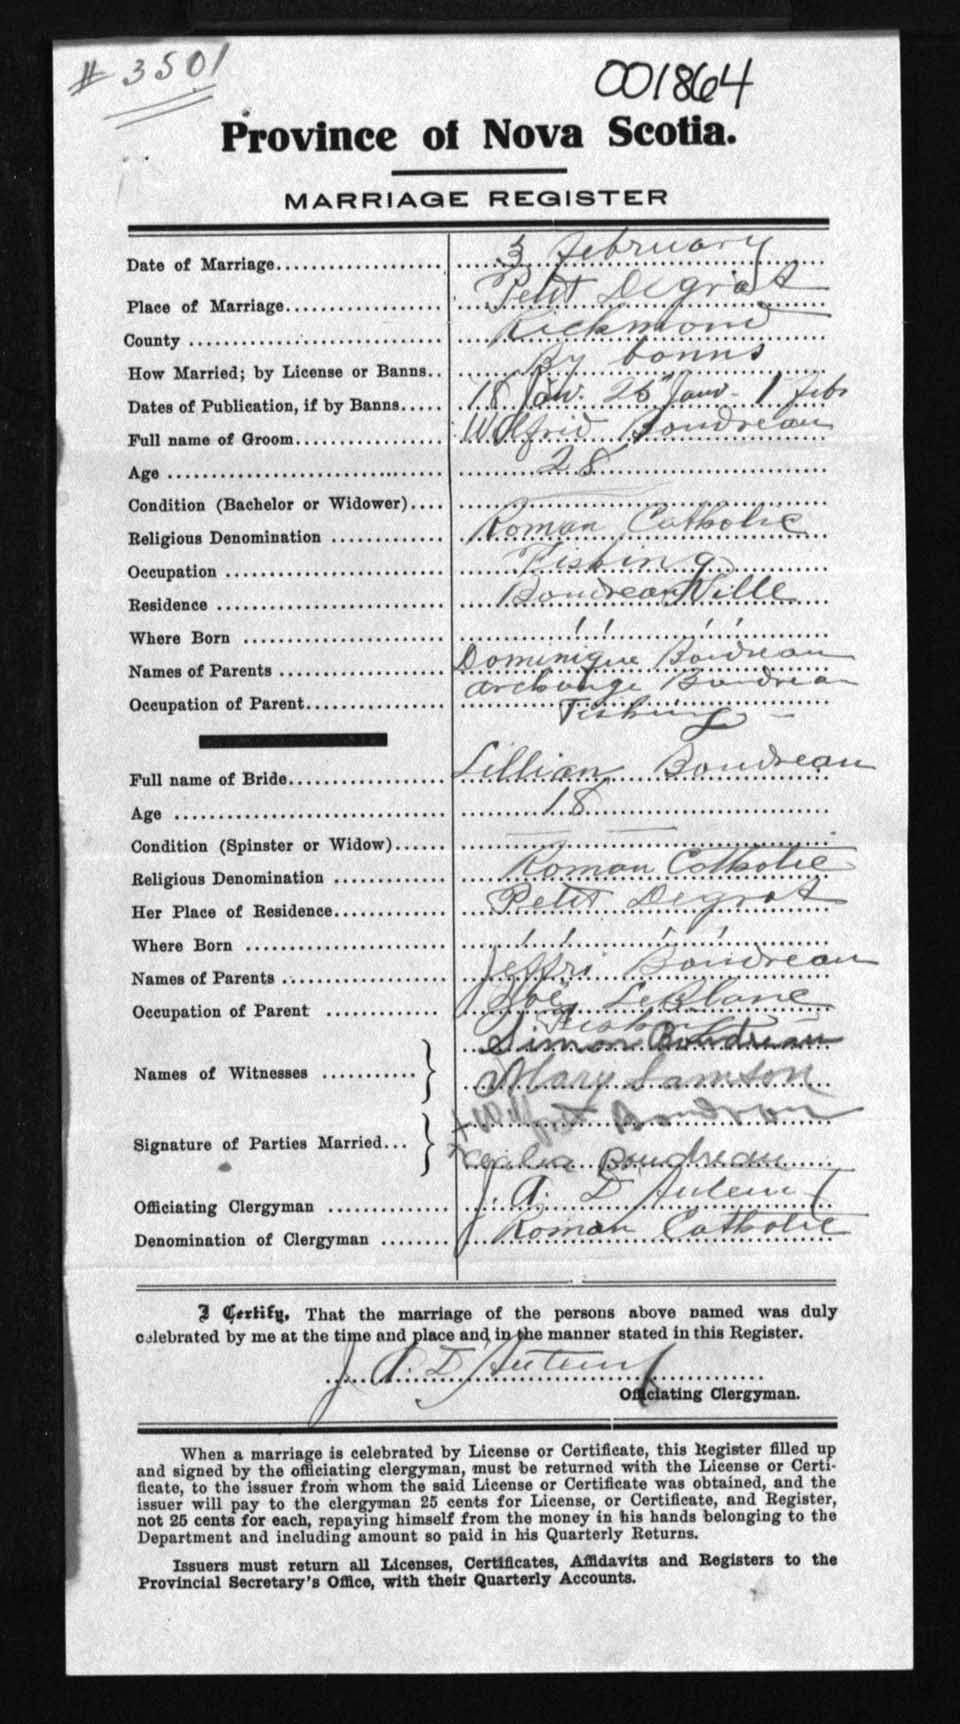 # 3501
001864
Province of Nova Scotia.
MARRIAGE REGISTER
Date of Marriage 3 February
Place of Marriage Petit Degrat
County Richmond
How Married; by License or Banns By banns
Dates of Publication, if by Banns 18 Jan. 25 Janv - 1 febr
Full name of Groom Wilfrid Boudreau
Age 28
Condition (Bachelor or Widower)
Religious Denomination Roman Catholic
Occupation Fishing
Residence Boudreauville
Where Born " "
Names of Parents Dominique Boudreau
Archange Boudreau
Occupation of Parent Fishing
Full name of Bride Lillian Boudreau
Age 18
Condition (Spinster or Widow)
Religious Denomination Roman Catholic
Her Place of Residence Petit Degrat
Where Born " "
Names of Parents Jeffri Boudreau
LeBlanc
Occupation of Parent
Names of Witnesses Simon Boudreau
Mary Samson
Signature of Parties Married Boudrau
Boudreau
Officiating Clergyman J. A. D'Auteuil
Denomination of Clergyman Roman Catholic
I Certify, That the marriage of the persons above named was duly
celebrated by me at the time and place and in the manner stated in this Register.
J. A. D'Auteuil
Officiating Clergyman.
When a marriage is celebrated by License or Certificate, this Register filled up
and signed by the officiating clergyman, must be returned with the License or Certi-
ficate, to the issuer from whom the said License or Certificate was obtained, and the
issuer will pay to the clergyman 25 cents for License, or Certificate, and Register,
not 25 cents for each, repaying himself from the money in his hands belonging to the
Department and including amount so paid in his Quarterly Returns.
Issuers must return all Licenses, Certificates, Affidavits and Registers to the
Provincial Secretary's Office, with their Quarterly Accounts.